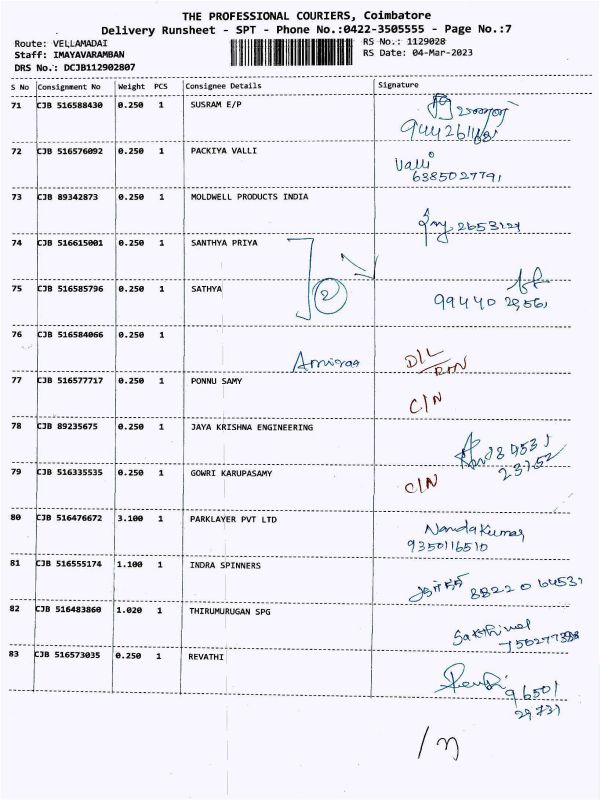 THE PROFESSIONAL COURIERS, Coimbatore
Delivery Runsheet - SPT - Phone No.:0422-3505555 - Page No.:7
Route: VELLAMADAI
RS No.: 1129028
Staff: IMAYAVARAMBAN
RS Date: 04-Mar-2023
DRS No.: DCJB112902807
S No Consignment No Weight PCS Consignee Details Signature
71 CJB 516588430 0.250 1 SUSRAM E/P
72 CJB 516576092 0.250 1 PACKIYA VALLI
Valli
6385027791
73 CJB 89342873 0.250 1 MOLDWELL PRODUCTS INDIA
2653121
74 CJB 516615001 0.250 1 SANTHYA PRIYA
75 CJB 516585796 0.250 1 SATHYA
2
99440
76 CJB 516584066 0.250 1
D/L
77 CJB 516577717 0.250 1 PONNU SAMY
C/N
78 CJB 89235675 0.250 1 JAYA KRISHNA ENGINEERING
79 CJB 516335535 0.250 1 GOWRI KARUPASAMY
C/N
80 CJB 516476672 3.100 1 PARKLAYER PVT LTD
Nandakumar
9350116510
81 CJB 516555174 1.100 1 INDRA SPINNERS
88220 64531
82 CJB 516483860 1.020 1 THIRUMURUGAN SPG
Sakthivel
83 CJB 516573035 0.250 1 REVATHI
96501
29731